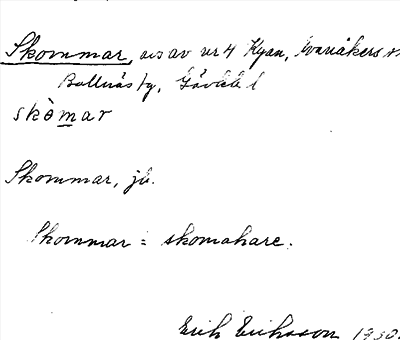 Skommar, avs av nr 4 Kyan, Svariåkers
Bollnäs tg, Gävleb l
skòmar
Skommar, jb.
Skommar = skomakare.
Erik Eriksson 1930.